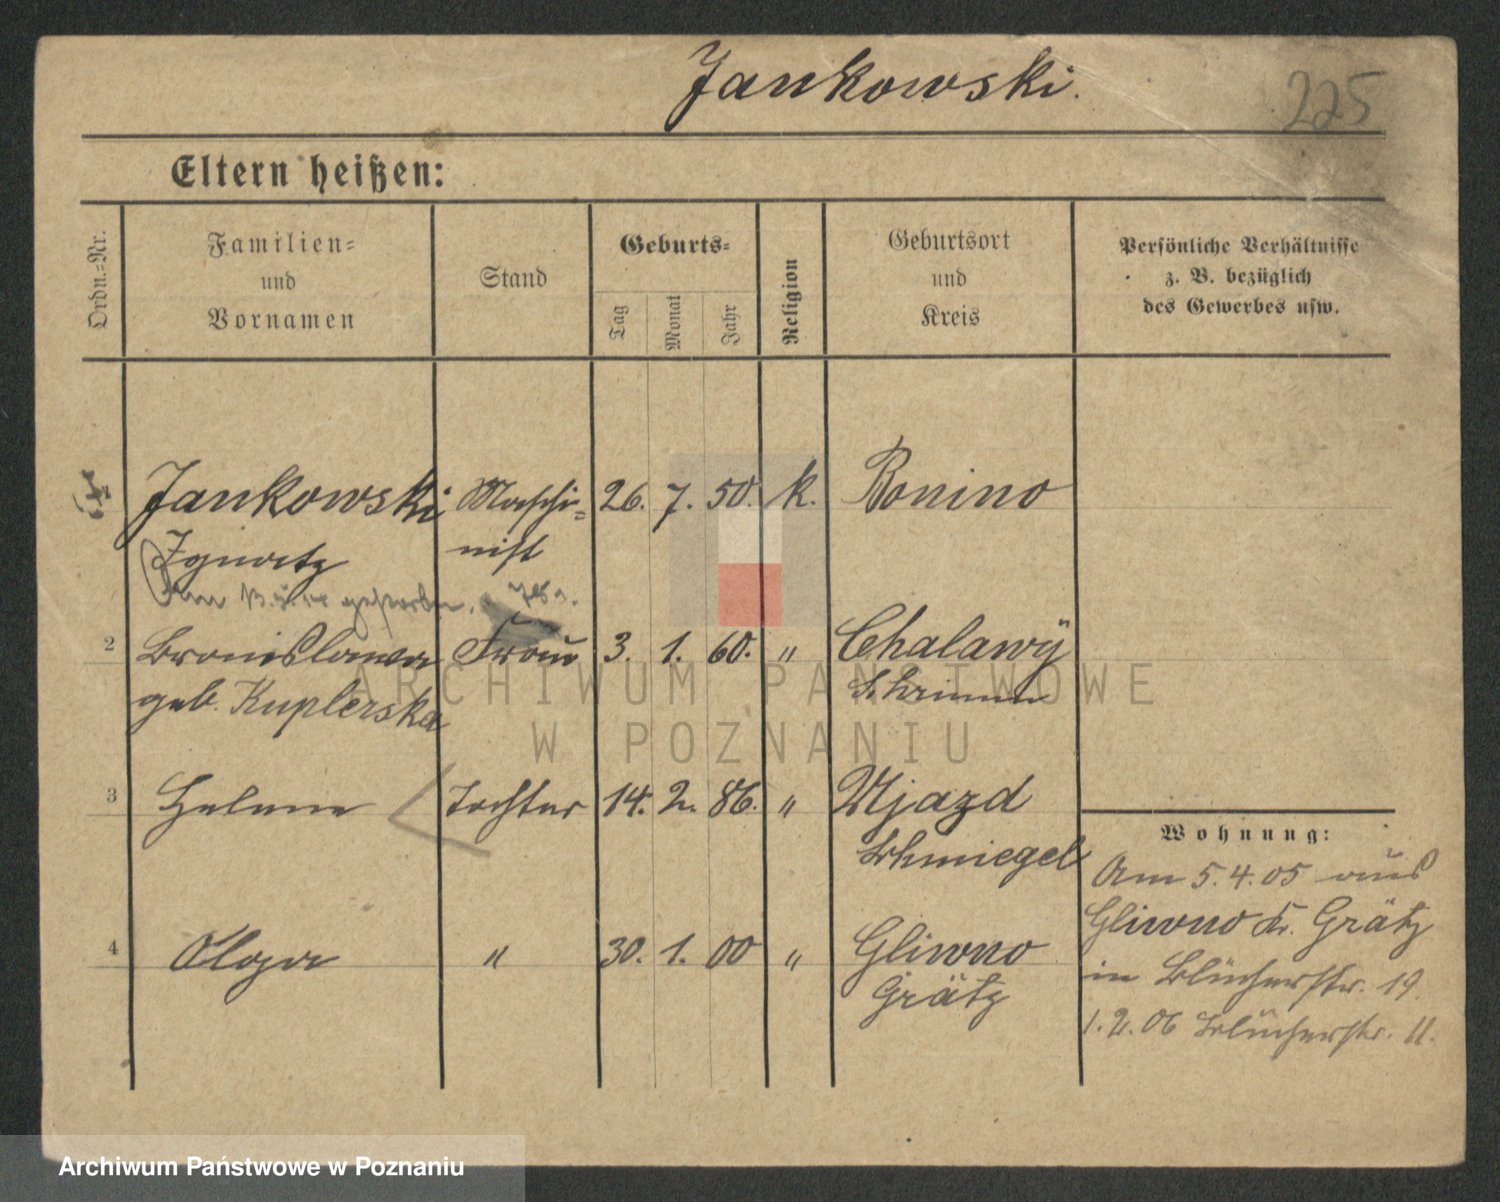 Jankowski.
225
Eltern heißen:
Ordn.=Nr.
Familien= und Vornamen
Stand
Geburts=
Tag
Monat
Jahr
Religion
Geburtsort und Kreis
Persönliche Verhältnisse
z. B. bezüglich
des Gewerbes usw.
Jankowski Maschi= 26. 7. 50. k. Bonino
Ignatz nist
Am gestorben.
2 Bronislawa Frau 3. 1. 60. " Chalawy
geb. Kuplerska Schrimm
3 Helene Tochter 14. 2. 86. " Ujazd
Schmiegel
4 Olga " 30. 1. 00 " Gliwno
Grätz
Wohnung:
Am 5.4.05 aus
Gliwno Kr. Grätz
in Blücherstr. 19.
1.2.06 Blücherstr. 11.
ARCHIWUM PAŃSTWOWE
W POZNANIU
Archiwum Państwowe w Poznaniu